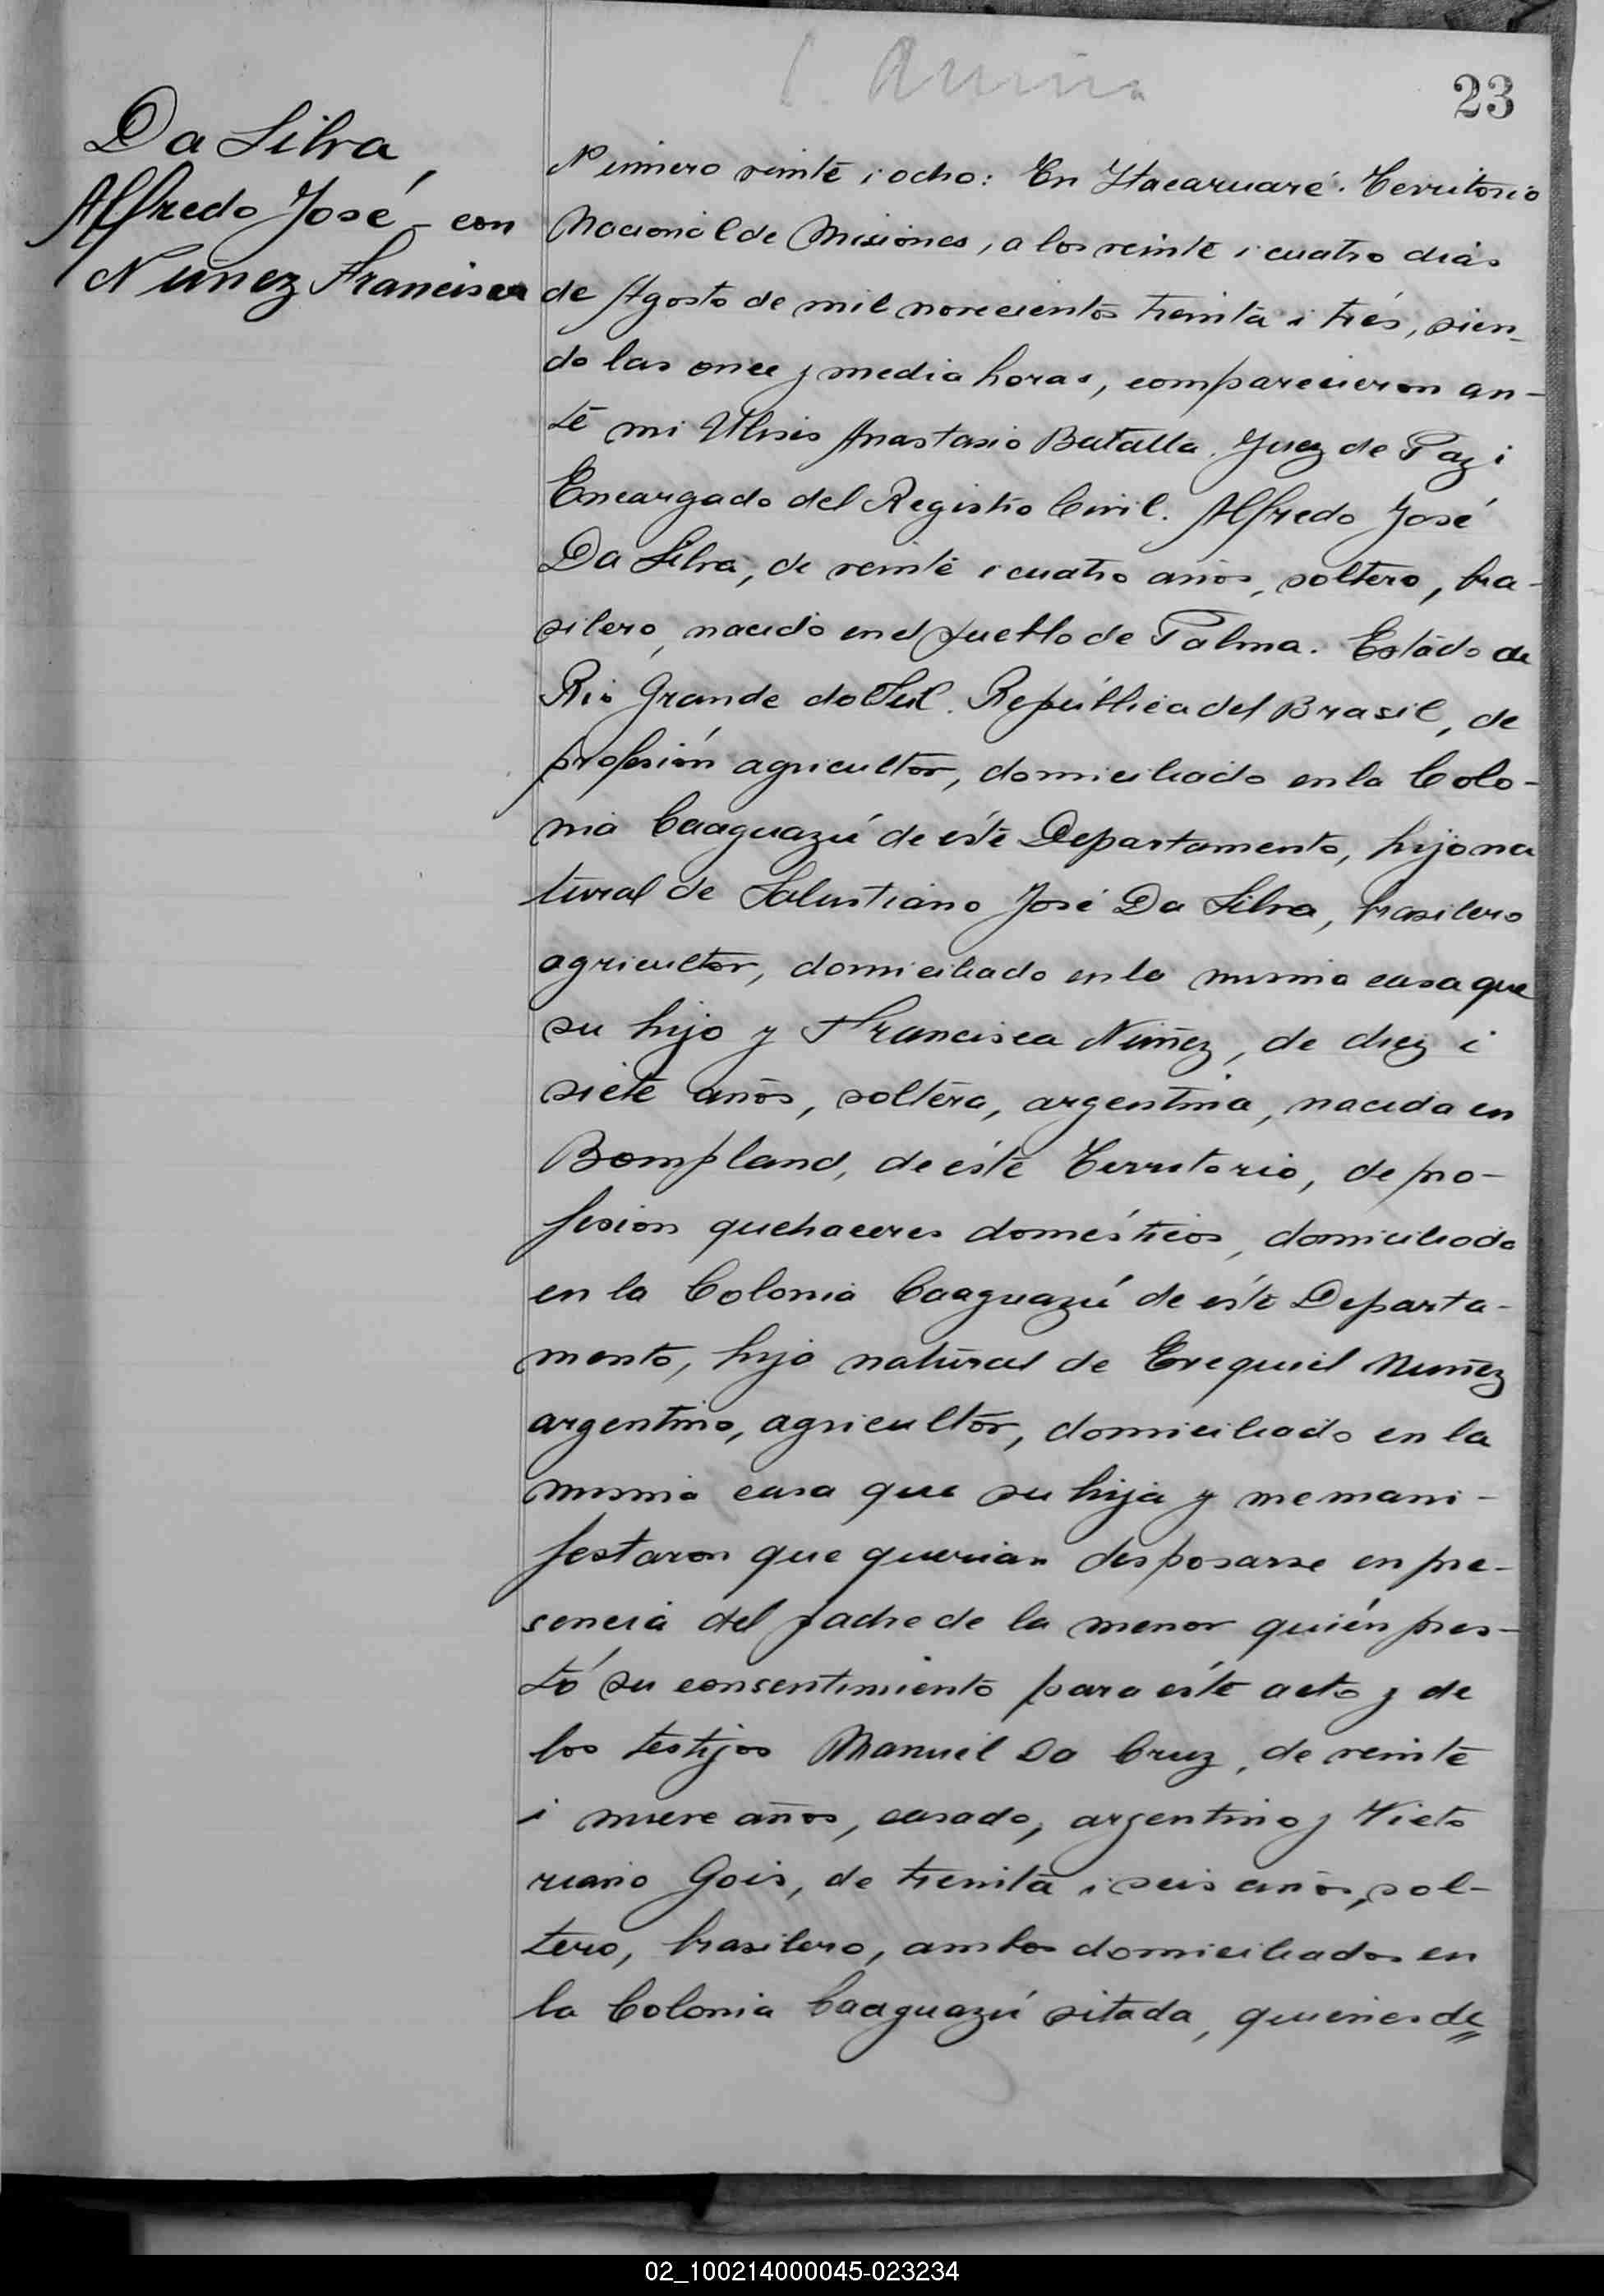 23
Da Silva,
Alfredo José - con
Nuñez Francisca
Número veinte i ocho: En Itacaruaré. Territorio
Nacional de Misiones, a los veinte i cuatro dias
de Agosto de mil novecientos treinta i trés, sien-
do las once y media horas, comparecieron an-
te mi Ulises Anastasio Batalla. Juez de Paz i
Encargado del Registro Civil. Alfredo José
Da Silva, de veinte i cuatro años, soltero, bra-
silero, nacido en el pueblo de Palma. Estado de
Rio Grande do Sul. República del Brasil, de
profesión agricultor, domiciliado en la Colo-
nia Caaguazú de éste Departamento, hijo na
tural de Salustiano José Da Silva, brasilero
agricultor, domiciliado en la misma casa que
su hijo y Francisca Nuñez, de diez i
siete años, soltera, argentina, nacida en
Bompland, de éste Territorio, de pro-
fesion quehaceres domésticos, domiciliada
en la Colonia Caaguazú de éste Departa-
mento, hija natural de Exequiel Nuñez
argentino, agricultor, domiciliado en la
misma casa que su hija y me mani-
festaron que querian desposarse en pre-
sencia del padre de la menor quién pres-
tó su consentimiento para éste acto y de
los testijos Manuel Da Cruz, de veinte
i nueve años, casado, argentino y Victo
riano Gois, de treinta i seis años, sol-
tero, brasilero, ambos domiciliados en
la Colonia Caaguazú sitada, quienes de
02_100214000045-023234